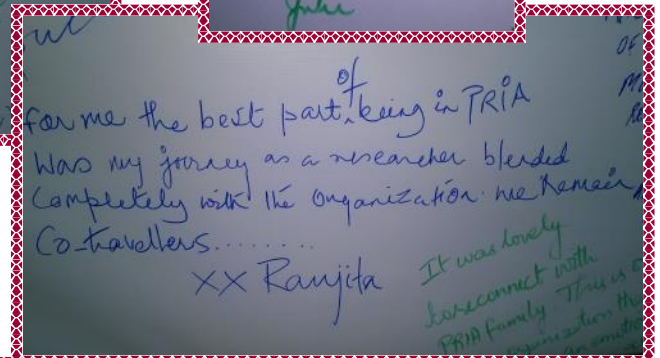 Julie
of
for me the best part being in PRIA
was my journey as a researcher blended
completely with the organization. we remain
Co-travellers........
XX Ranjita
It was lovely
to reconnect with
PRIA family This is